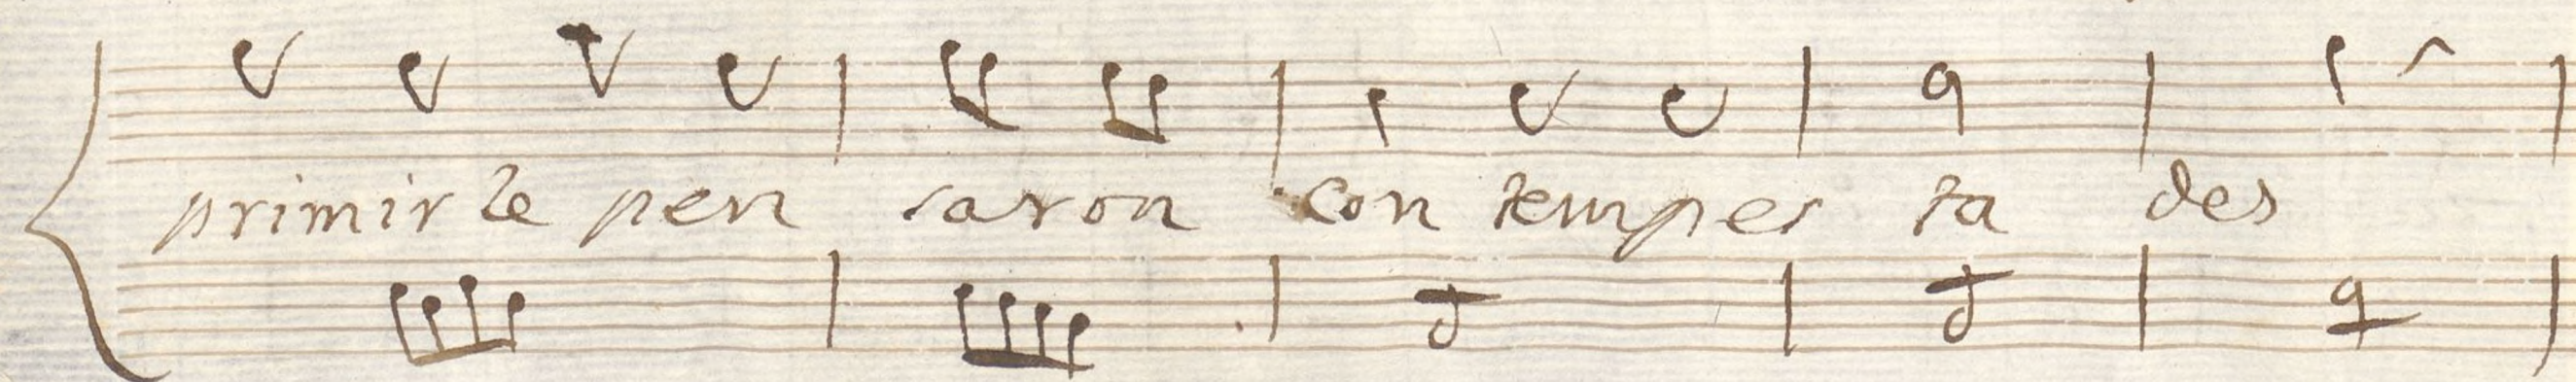 primir le pen saron con tempes ta des